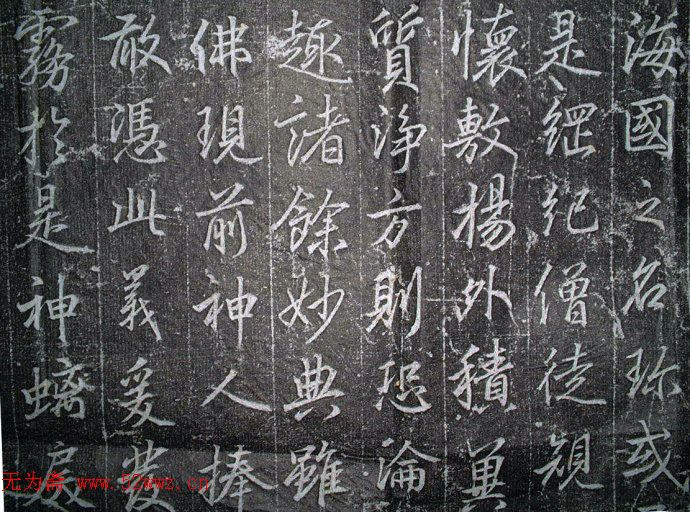 海國之名珎或
是綱紀僧徒規
懷敷揚外積
質淨方則恐淪
趣諸餘妙典雖
佛現前神人捧
敢憑此義爰發
霧於是神螭
无为斋 www.52wwz.cn